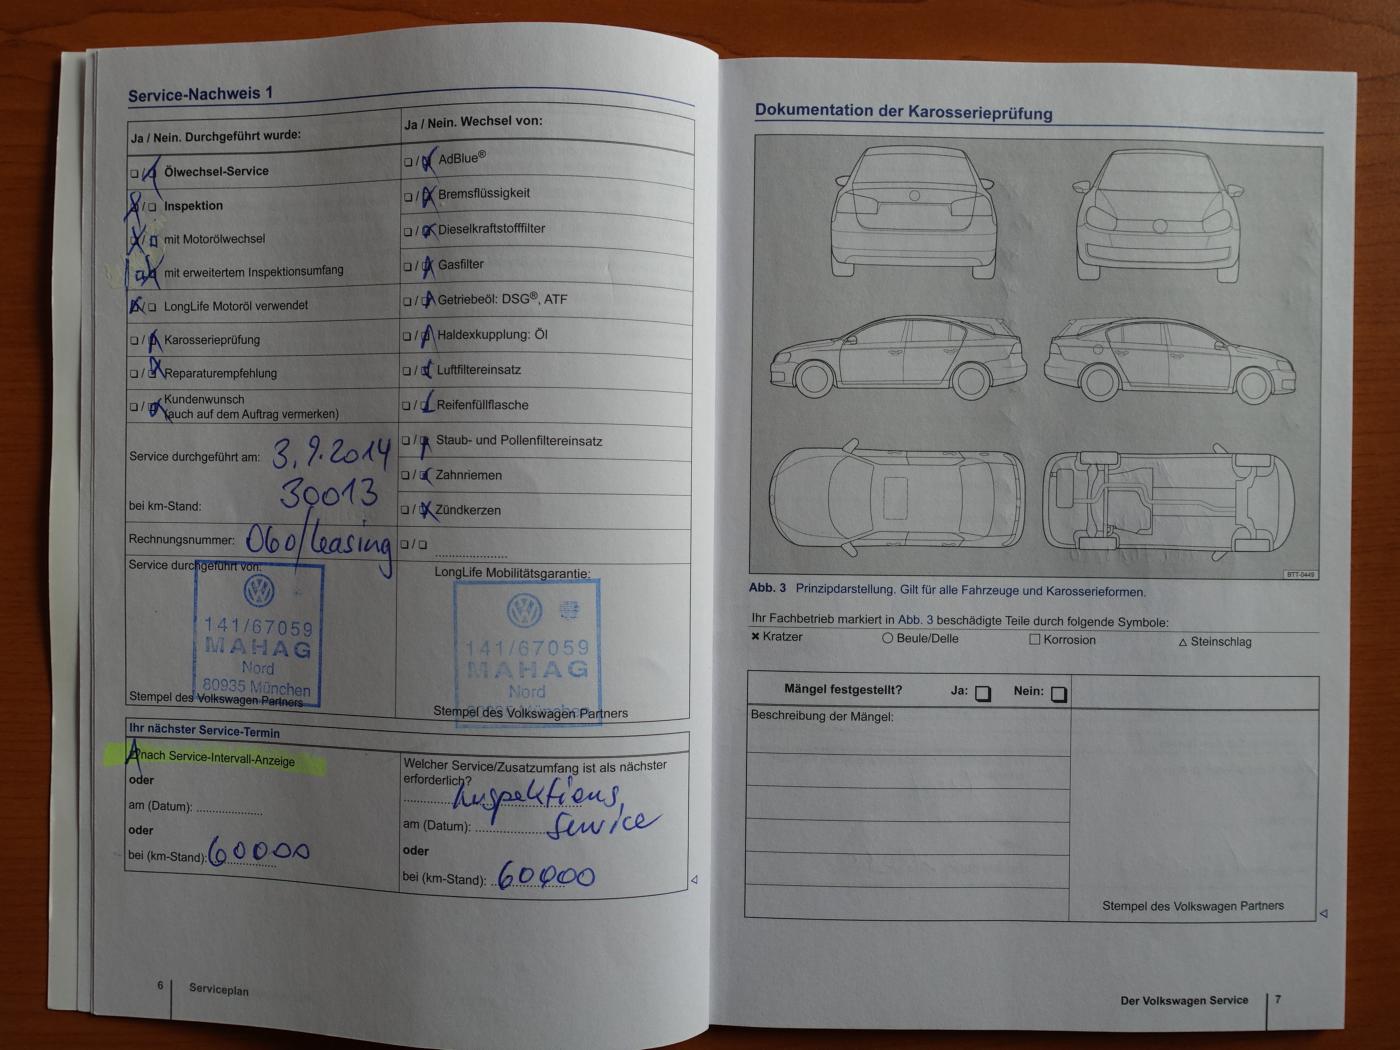 Service-Nachweis 1
Ja / Nein. Durchgeführt wurde:
❏ / ❏ Ölwechsel-Service
❏ / ❏ Inspektion
❏ / ❏ mit Motorölwechsel
❏ / ❏ mit erweitertem Inspektionsumfang
❏ / ❏ LongLife Motoröl verwendet
❏ / ❏ Karosserieprüfung
❏ / ❏ Reparaturempfehlung
❏ / ❏ Kundenwunsch
(auch auf dem Auftrag vermerken)
Service durchgeführt am: 3.9.2014
bei km-Stand: 30013
Rechnungsnummer: 060/Leasing
Service durchgeführt von:
141/67059
MAHAG
Nord
80935 München
Stempel des Volkswagen Partners
Ja / Nein. Wechsel von:
❏ / ❏ AdBlue®
❏ / ❏ Bremsflüssigkeit
❏ / ❏ Dieselkraftstofffilter
❏ / ❏ Gasfilter
❏ / ❏ Getriebeöl: DSG®, ATF
❏ / ❏ Haldexkupplung: Öl
❏ / ❏ Luftfiltereinsatz
❏ / ❏ Reifenfüllflasche
❏ / ❏ Staub- und Pollenfiltereinsatz
❏ / ❏ Zahnriemen
❏ / ❏ Zündkerzen
❏ / ❏ ....................
LongLife Mobilitätsgarantie:
141/67059
MAHAG
Nord
80935 München
Stempel des Volkswagen Partners
Ihr nächster Service-Termin
❏ nach Service-Intervall-Anzeige
oder
am (Datum): ..................
oder
bei (km-Stand): 60000
Welcher Service/Zusatzumfang ist als nächster
erforderlich?
Inspektions
am (Datum): Service
oder
bei (km-Stand): 60000
6 Serviceplan
Dokumentation der Karosserieprüfung
BTT-0449
Abb. 3 Prinzipdarstellung. Gilt für alle Fahrzeuge und Karosserieformen.
Ihr Fachbetrieb markiert in Abb. 3 beschädigte Teile durch folgende Symbole:
✖ Kratzer ○ Beule/Delle □ Korrosion △ Steinschlag
Mängel festgestellt? Ja: ❏ Nein: ❏
Beschreibung der Mängel:
Stempel des Volkswagen Partners
Der Volkswagen Service 7